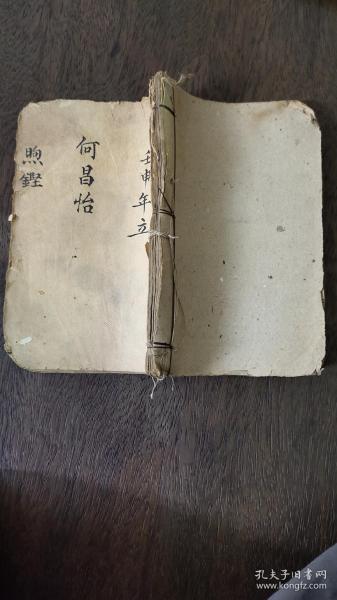 壬申年立
何昌怡
煦鏗
孔夫子旧书网
www.kongfz.com